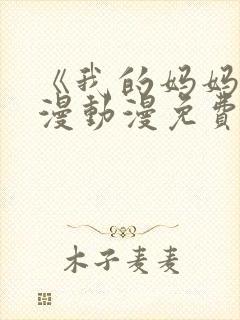 《我的妈妈
漫動漫免費
木子麦麦